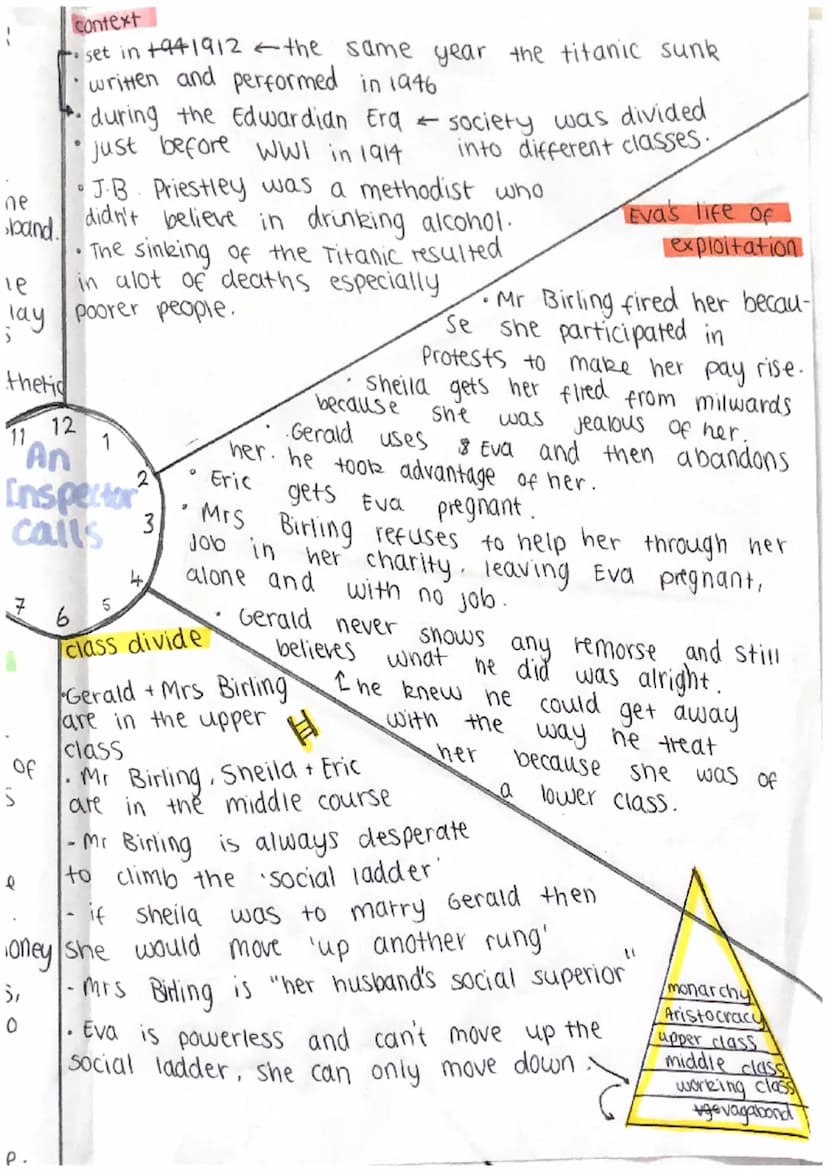 context
• set in 1941912 ← the same year the titanic sunk
• written and performed in 1946
• during the Edwardian Era ← society was divided
into different classes.
• just before WWI in 1914
• J.B. Priestley was a methodist who
didn't believe in drinking alcohol.
• The sinking of the Titanic resulted
in alot of deaths especially
poorer people.
sband.
lay
thetic
Eva's life of
exploitation
• Mr Birling fired her becau-
se she participated in
Protests to make her pay rise.
• Sheila gets her fired from milwards
because she was jealous of her.
• Gerald uses Eva and then abandons
her. he took advantage of her.
• Eric gets Eva pregnant.
• Mrs Birling refuses to help her through her
job in her charity, leaving Eva pregnant,
alone and with no job.
• Gerald never shows any remorse and still
believes what he did was alright.
↑ he knew he could get away
with the way he treat
her because she was of
a lower class.
11 12 1
2
3
4
5
6
7
An
Inspector
calls
class divide
• Gerald + Mrs Birling
are in the upper
class
• Mr Birling, Sheila + Eric
are in the middle course
- Mr Birling is always desperate
to climb the 'social ladder'
- if sheila was to marry Gerald then
she would move 'up another rung'
- Mrs Birling is "her husband's social superior"
• Eva is powerless and can't move up the
social ladder, she can only move down.
of
oney
monarchy
Aristocracy
upper class
middle class
working class
vagabond